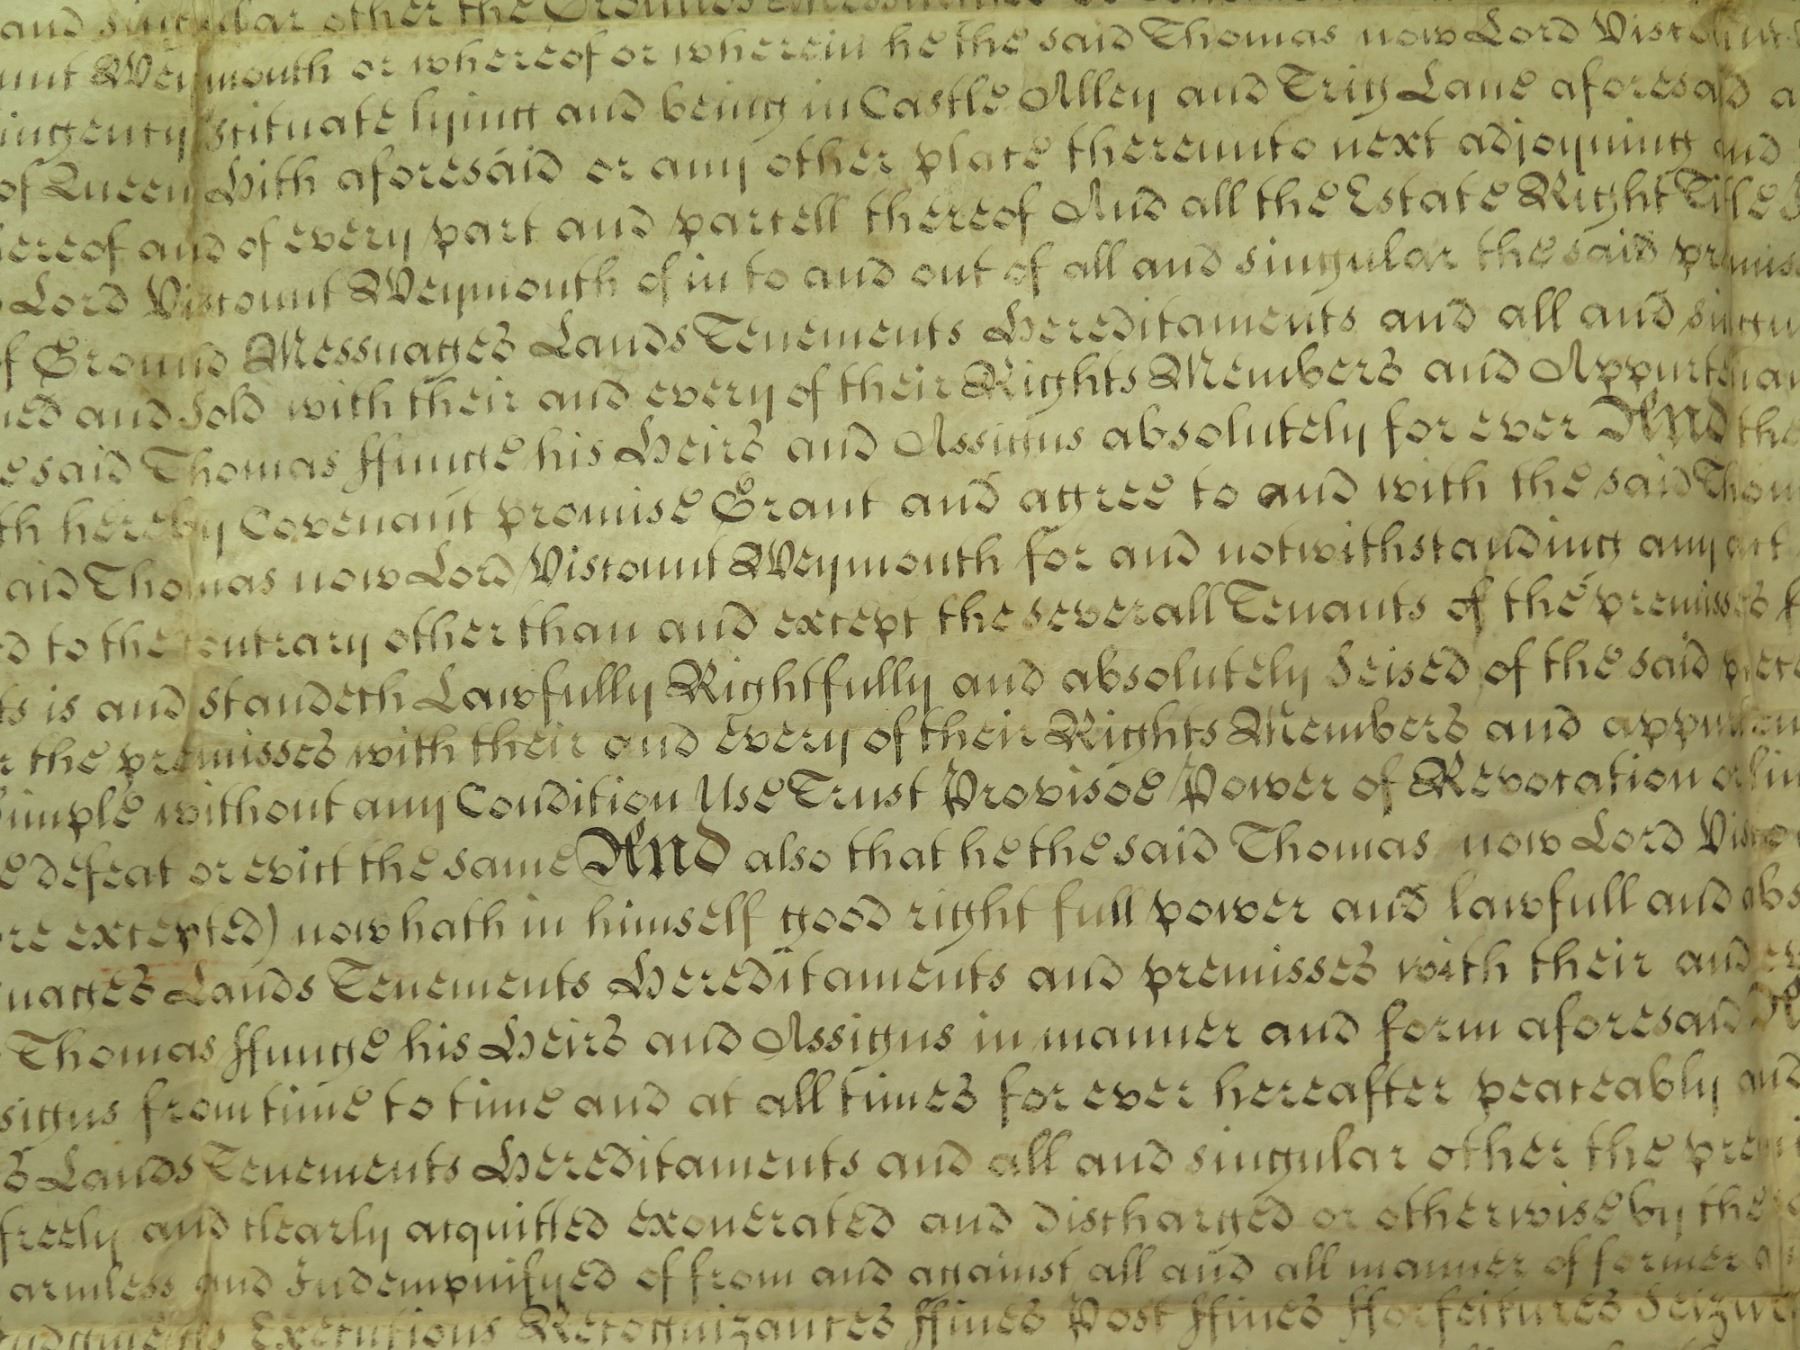 and singular other the Grounds Messuages
unt Weymouth or whereof or wherein he the said Thomas now Lord Viscount
ingency scituate lying and being in Castle Alley and Trig Lane aforesaid a
of Queen Hith aforesaid or any other place thereunto next adjoyning and
hereof and of every part and parcell thereof And all the Estate Right Title
Lord Viscount Weymouth of in to and out of all and singular the said premis
f Ground Messuages Lands Tenements Hereditaments and all and singu
ned and Sold with their and every of their Rights Members and Appurtenan
e said Thomas ffunge his Heirs and Assigns absolutely for ever And the
th hereby Covenant promise Grant and agree to and with the said Thom
said Thomas now Lord Viscount Weymouth for and notwithstanding any act
d to the contrary other than and except the severall Tenants of the premisses
ts is and standeth Lawfully Rightfully and absolutely Seised of the said piece
r the premisses with their and every of their Rights Members and appurten
Simple without any Condition Use Trust Provisoe Power of Revocation or lim
e defeat or evict the same And also that he the said Thomas now Lord Visco
re excepted) now hath in himself good right full power and lawfull and abs
uages Lands Tenements Hereditaments and premisses with their and ev
Thomas ffunge his Heirs and Assigns in manner and form aforesaid
signs from time to time and at all times for ever hereafter peaceably and
s Lands Tenements Hereditaments and all and singular other the premi
freely and clearly acquitted exonerated and discharged or otherwise by the
armless and Indempnifyed of from and against all and all manner of former
Judgments Executions Recognizances ffines Post ffines fforfeitures Seizur